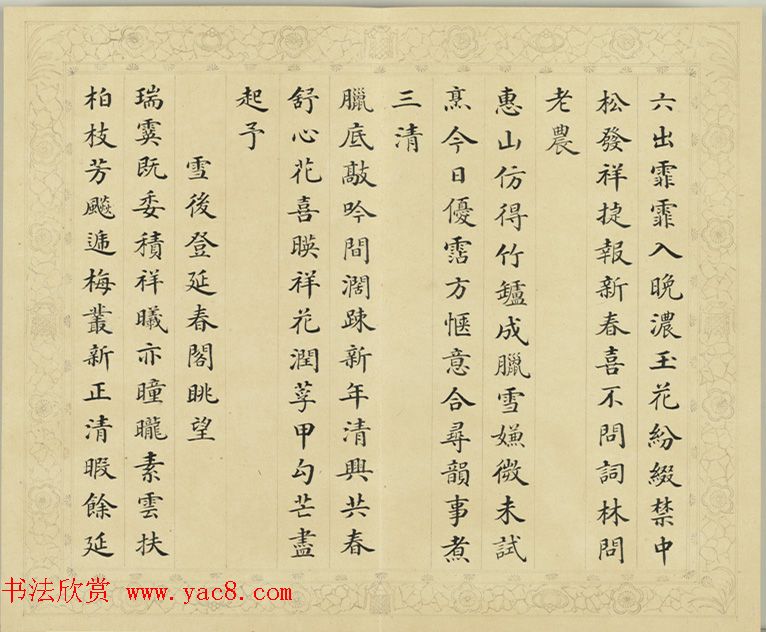 六出霏霏入晚濃玉花紛綴禁中
松發祥捷報新春喜不問詞林問
老農
惠山仿得竹鑪成臘雪嫌微未試
烹今日優霑方愜意合尋韻事煮
三清
臘底敲吟間濶踈新年清興共春
舒心花喜暎祥花潤莩甲勾芒盡
起予
雪後登延春閣眺望
瑞霙既委積祥曦亦曈曨素雲扶
柏枝芳飈遞梅叢新正清暇餘延
书法欣赏 www.yac8.com